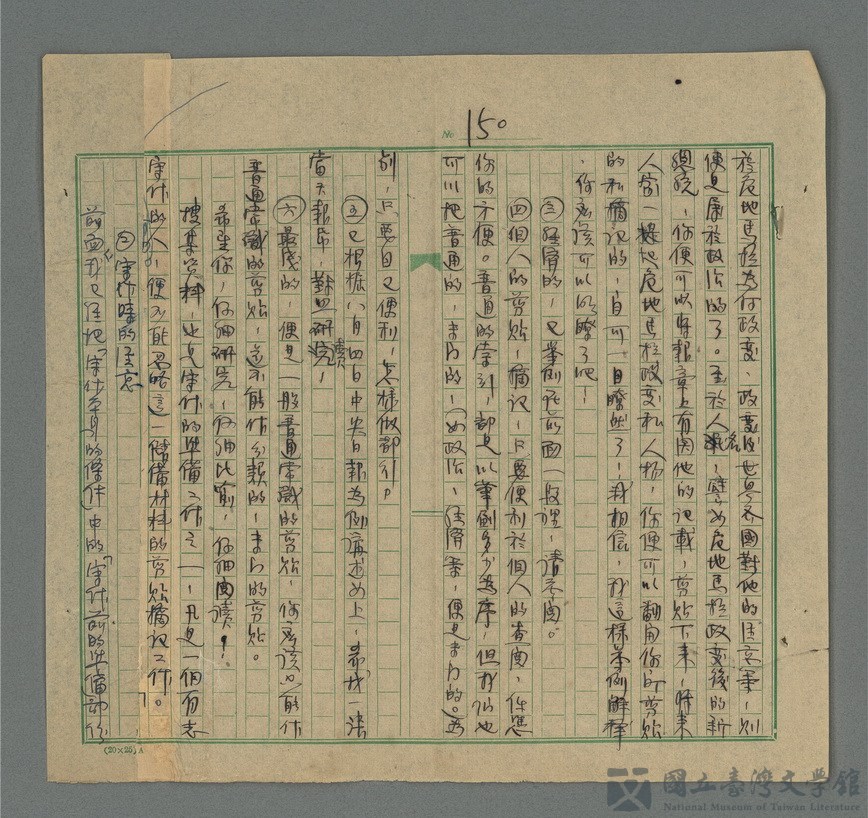 No 150
於瓜地馬拉為何政變、政變後世界各國對他的注意等,則
便是屬於政治的了。至於人名,譬如瓜地馬拉政變後的新
總統,你便可以將報章上有關他的記載,剪貼下來,將來
人家一提瓜地馬拉政變私人物,你便可以翻開你所剪貼
的和摘記的,自可一目瞭然了,我相信,我這樣舉例解釋
,你應該可以明瞭了吧!
㊂經濟的,已舉例在前面一段裡,請參閱。
㊃個人的剪貼,摘記,只要便利於個人的查閱,任憑
你的方便。普通的索引,都是以筆劃多少為序,但我們也
可以把普通的,專門的,(如政治,經濟等,便是專門的。)
別,只要自己便利,怎樣做都行。
㊄已根據八月四日中央日報為例講述如上,最好找一張
當天報紙,對照研讀,
㊅最後的,便是一般普通常識的剪貼,你應該只能作
普通常識的剪貼,並不能作分類的,專門的剪貼。
希望你,仔細研究,仔細比前,仔細閱讀!
搜集資料,也是寫作的準備工作之一,凡是一個有志
寫作的人,便不能忽略這一儲備材料的剪貼摘記工作。
㊁寫作時的注意
前面我已經把「寫作本身的條件」中的「寫作前的準備部份
(20×25) A
國立臺灣文學館
National Museum of Taiwan Literature